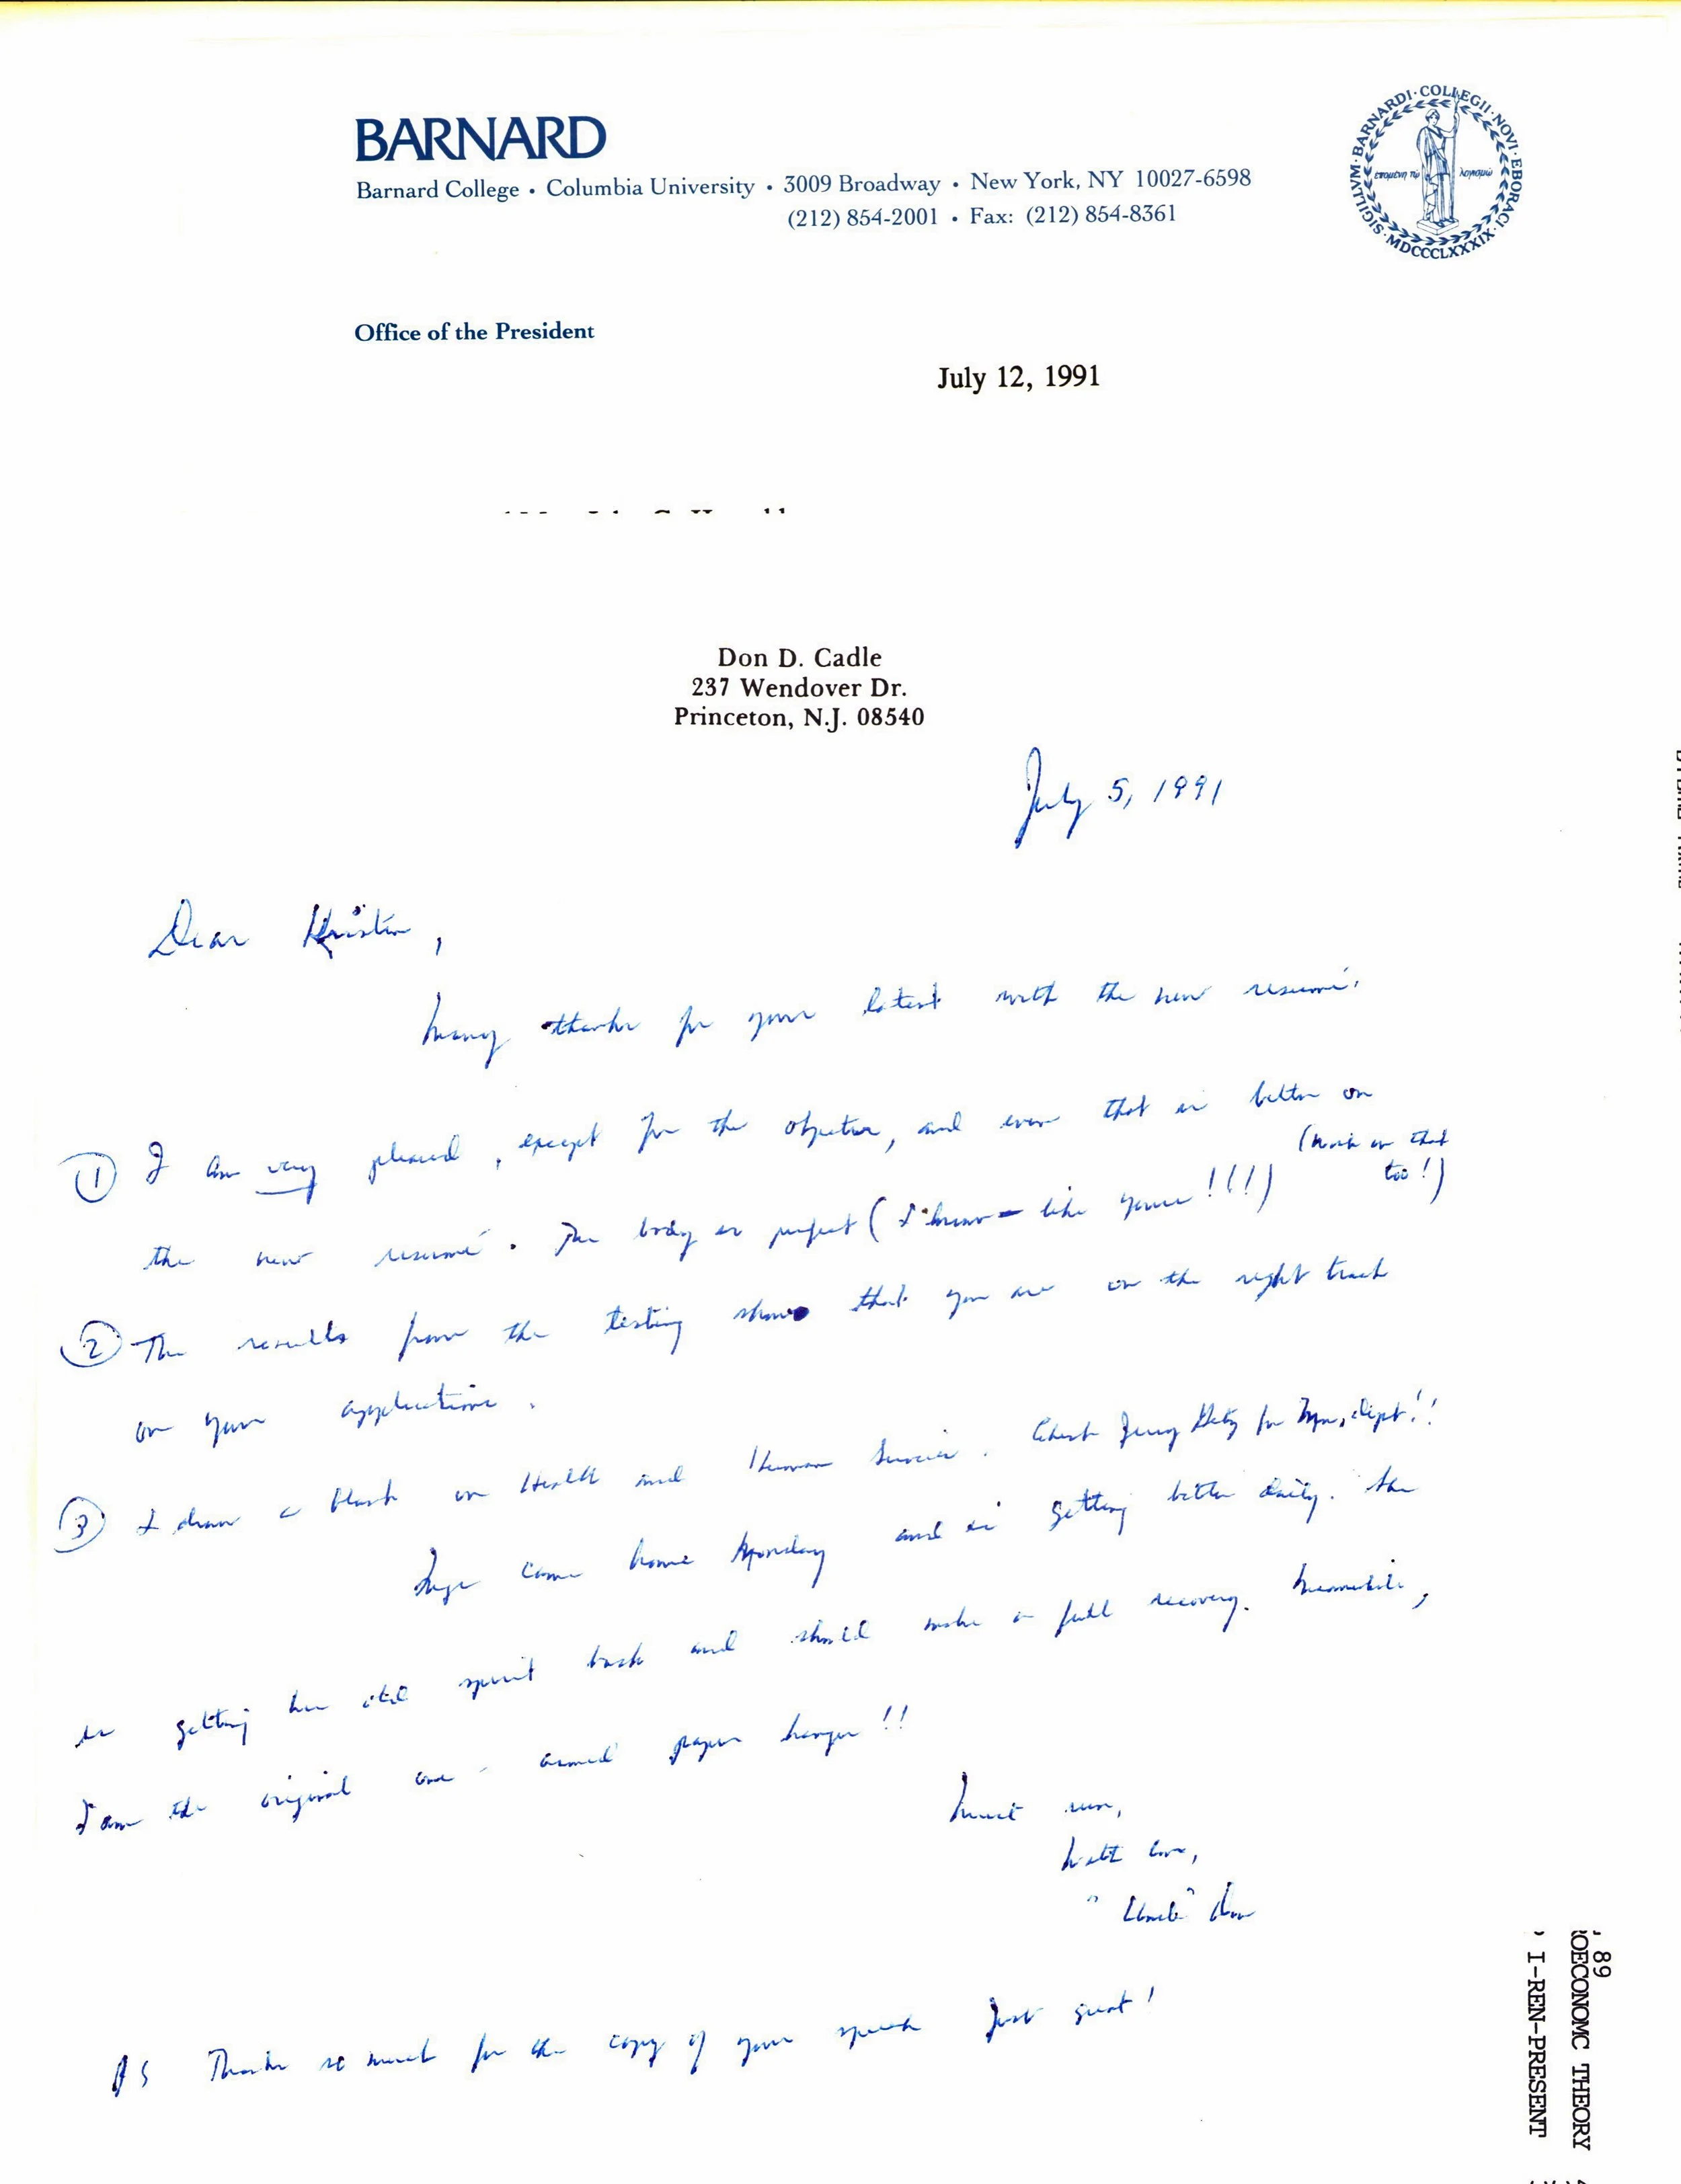 BARNARD
Barnard College • Columbia University • 3009 Broadway • New York, NY 10027-6598
(212) 854-2001 • Fax: (212) 854-8361
SIGILLVM · BARNARDI · COLLEGII · NOVI · EBORACI · MDCCCLXXXIX
ἑπομένη τῷ λογισμῷ
Office of the President
July 12, 1991
Don D. Cadle
237 Wendover Dr.
Princeton, N.J. 08540
July 5, 1991
Dear Kristin,
Many thanks for your latest with the new resumé.
① I am very pleased, except for the objective, and even that is better on
the new resumé. The body is perfect (I know – like yours!!!!) (Work on that
too!)
② The results from the testing shows that you are on the right track
on your applications.
③ I draw a blank on Health and Human Services. Check Jerry for dept!!
Inge came home Monday and is getting better daily. She
is getting her old spirit back and should make a full recovery. Meanwhile,
I am the original one-armed paper hanger!!
Must run,
With love,
"Uncle" Don
PS Thanks so much for the copy of your speech Just great!
89
OECONOMC THEORY
I-REN-PRESENT